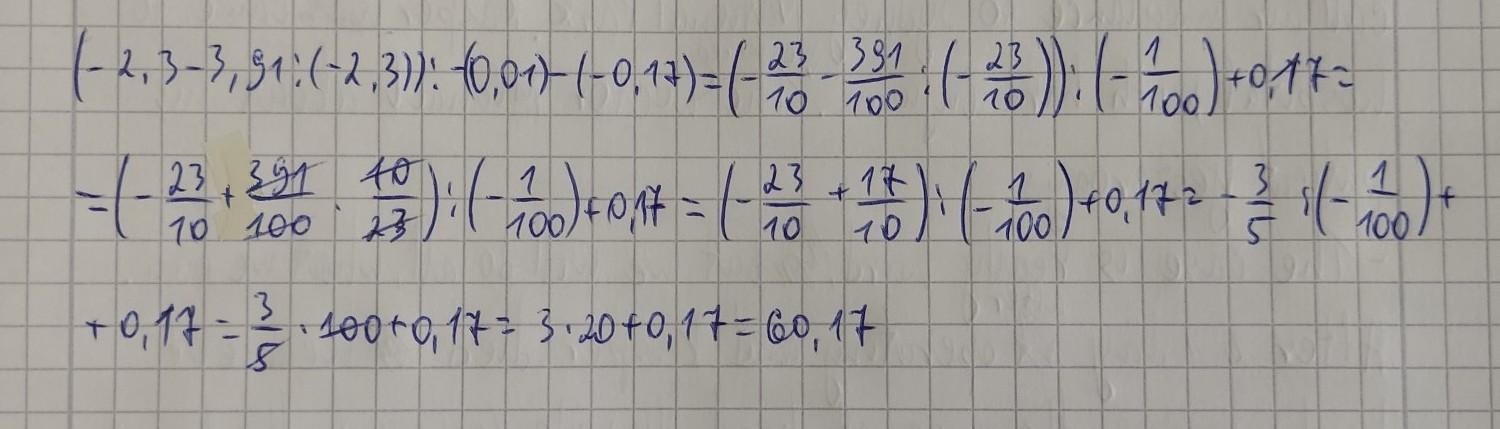 (-2,3-3,91:(-2,3)):-(0,01)-(-0,17)=(-23/10-391/100:(-23/10)):(-1/100)+0,17=
=(-23/10+391/100·10/23):(-1/100)+0,17=(-23/10+17/10):(-1/100)+0,17=-3/5:(-1/100)+
+0,17=3/5·100+0,17=3·20+0,17=60,17